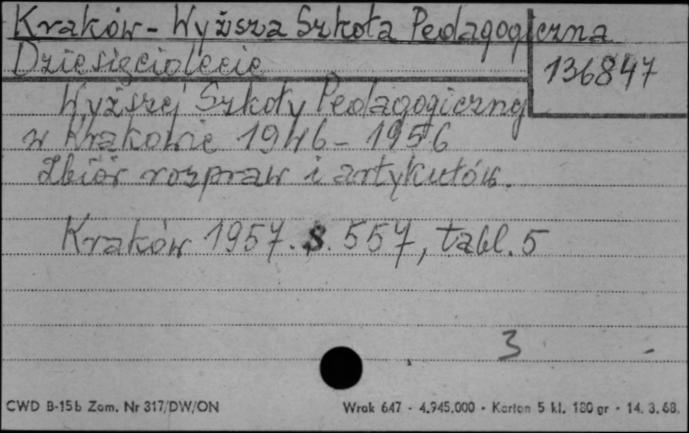 Kraków - Wyższa Szkoła Pedagogiczna
Dziesięciolecie
136847
Wyższej Szkoły Pedagogicznej
w Krakowie 1946 - 1956
Zbiór rozpraw i artykułów.
Kraków 1957. S. 557, tabl. 5
3
CWD B-15b Zam. Nr 317/DW/ON
Wrak 647 - 4.945.000 - Karton 5 kl. 180 gr - 14. 3. 68.